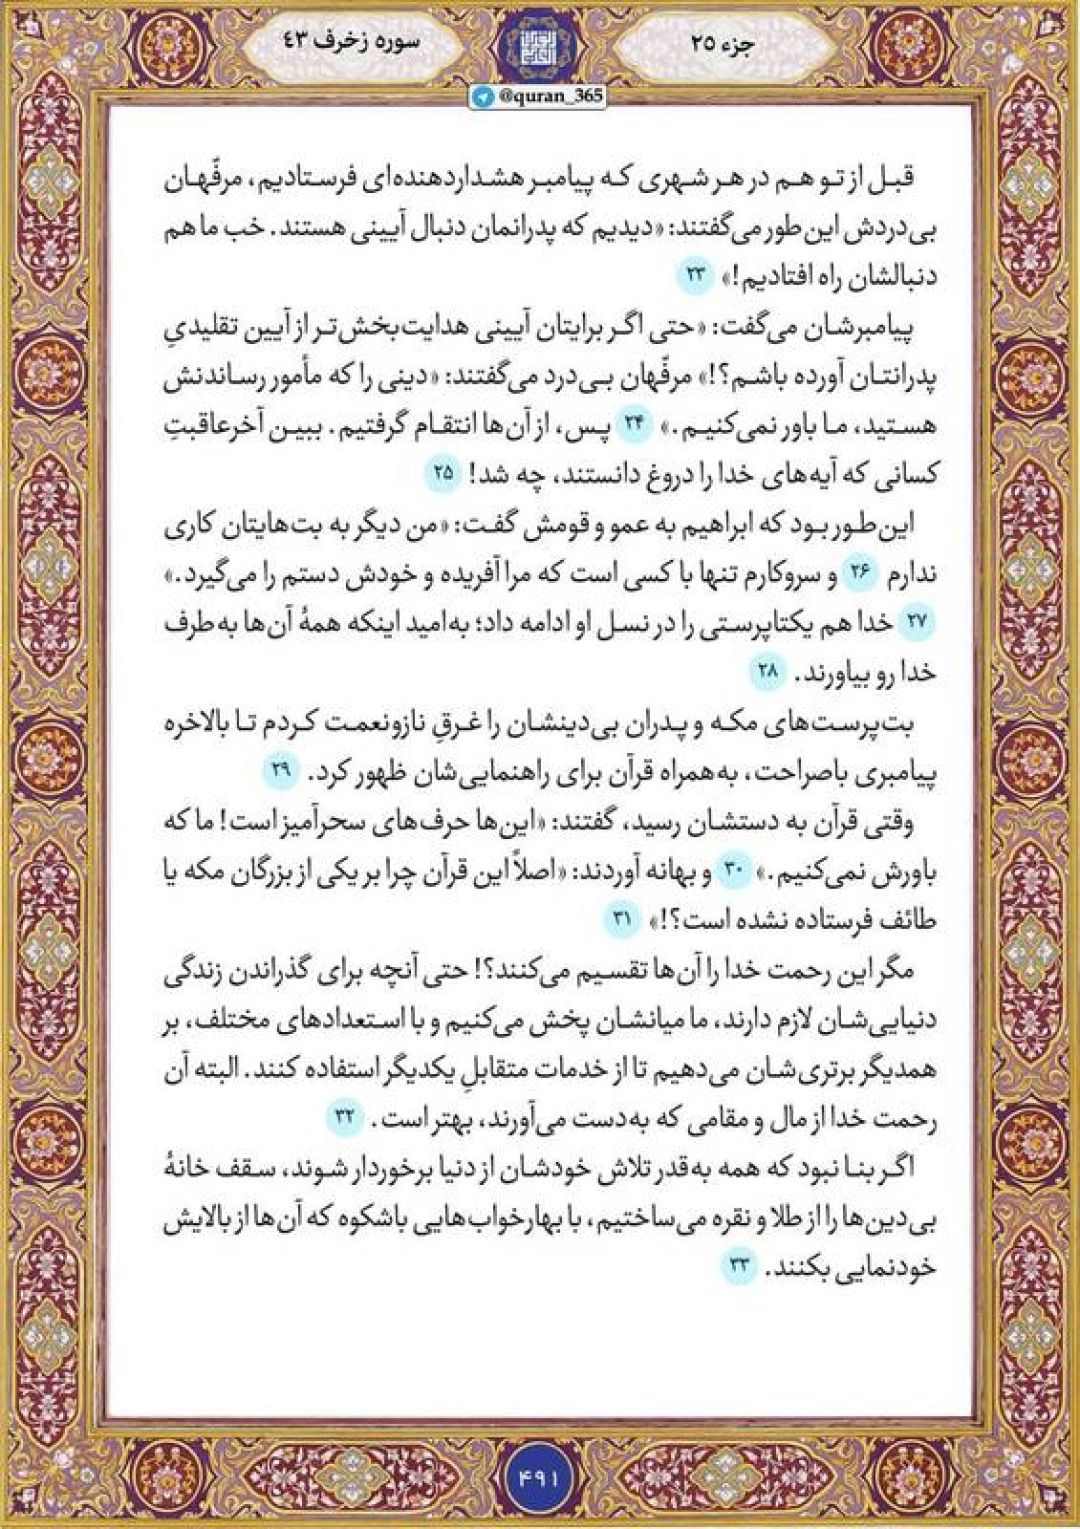 جزء ۲۵
سوره زخرف ٤٣
@quran_365
قبل از تو هم در هر شهری که پیامبر هشداردهنده‌ای فرستادیم، مرفّهان
بی‌دردش این طور می‌گفتند: «دیدیم که پدرانمان دنبال آیینی هستند. خب ما هم
دنبالشان راه افتادیم!» ۲۳
پیامبرشان می‌گفت: «حتی اگر برایتان آیینی هدایت‌بخش‌تر از آیین تقلیدیِ
پدرانتان آورده باشم؟!» مرفّهان بی‌درد می‌گفتند: «دینی را که مأمور رساندنش
هستید، ما باور نمی‌کنیم.» ۲۴ پس، از آن‌ها انتقام گرفتیم. ببین آخرعاقبتِ
کسانی که آیه‌های خدا را دروغ دانستند، چه شد! ۲۵
این‌طور بود که ابراهیم به عمو و قومش گفت: «من دیگر به بت‌هایتان کاری
ندارم ۲۶ و سروکارم تنها با کسی است که مرا آفریده و خودش دستم را می‌گیرد.»
۲۷ خدا هم یکتاپرستی را در نسل او ادامه داد؛ به‌امید اینکه همهٔ آن‌ها به‌طرف
خدا رو بیاورند. ۲۸
بت‌پرست‌های مکه و پدران بی‌دینشان را غرقِ نازونعمت کردم تا بالاخره
پیامبری باصراحت، به‌همراه قرآن برای راهنمایی‌شان ظهور کرد. ۲۹
وقتی قرآن به دستشان رسید، گفتند: «این‌ها حرف‌های سحرآمیز است! ما که
باورش نمی‌کنیم.» ۳۰ و بهانه آوردند: «اصلاً این قرآن چرا بر یکی از بزرگان مکه یا
طائف فرستاده نشده است؟!» ۳۱
مگر این رحمت خدا را آن‌ها تقسیم می‌کنند؟! حتی آنچه برای گذراندن زندگی
دنیایی‌شان لازم دارند، ما میانشان پخش می‌کنیم و با استعدادهای مختلف، بر
همدیگر برتری‌شان می‌دهیم تا از خدمات متقابلِ یکدیگر استفاده کنند. البته آن
رحمت خدا از مال و مقامی که به‌دست می‌آورند، بهتر است. ۳۲
اگر بنا نبود که همه به‌قدر تلاش خودشان از دنیا برخوردار شوند، سقف خانهٔ
بی‌دین‌ها را از طلا و نقره می‌ساختیم، با بهارخواب‌هایی باشکوه که آن‌ها از بالایش
خودنمایی بکنند. ۳۳
۴۹۱